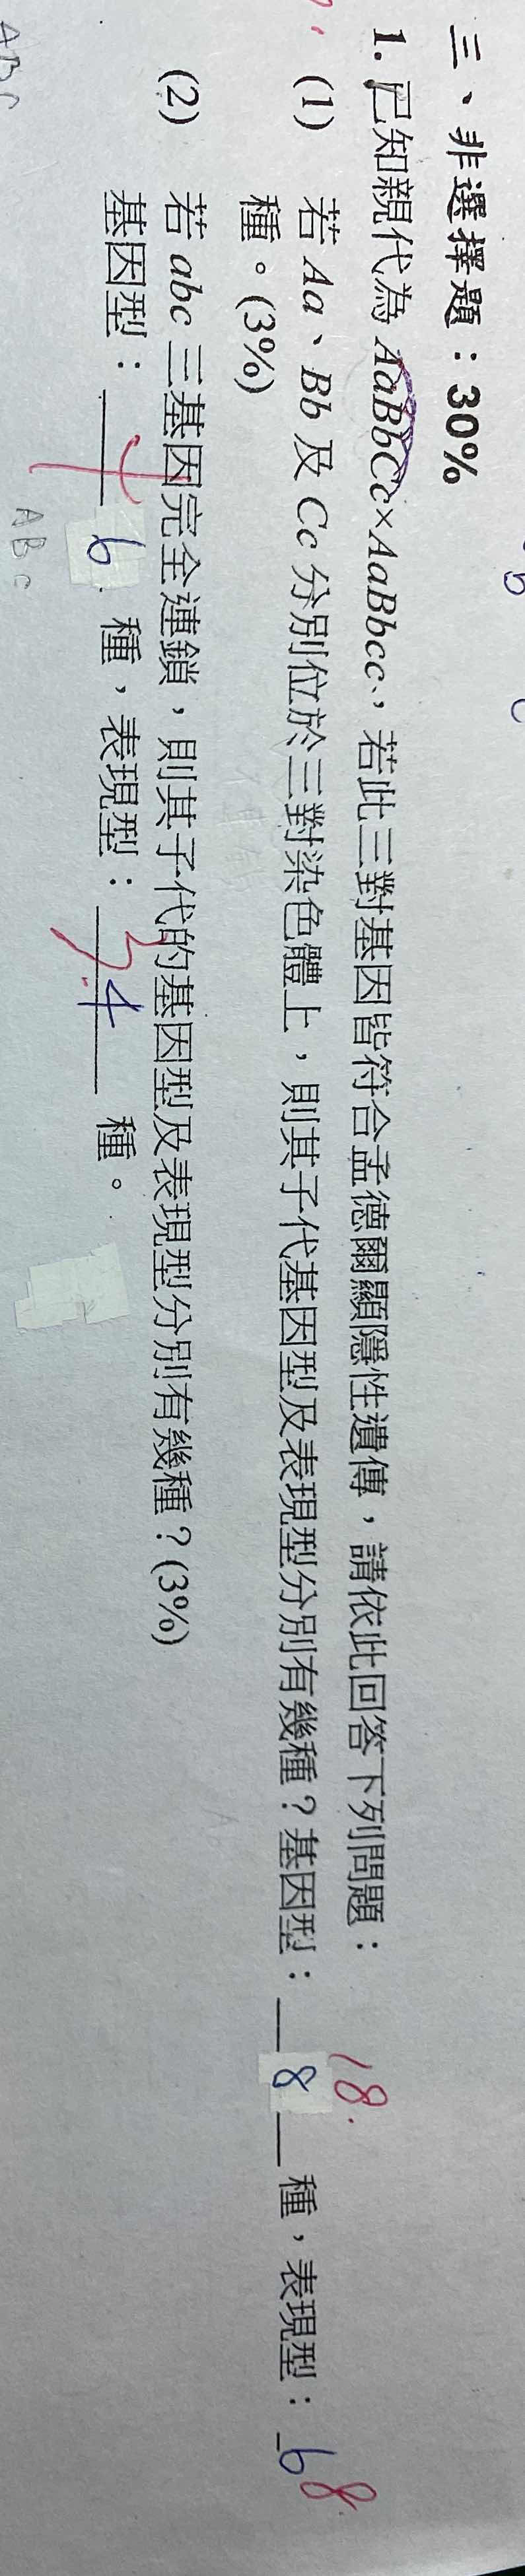 三、非選擇題：30%
1. 已知親代為 AaBbCc×AaBbcc，若此三對基因皆符合孟德爾顯隱性遺傳，請依此回答下列問題：
18.
(1) 若 Aa、Bb 及 Cc 分別位於三對染色體上，則其子代基因型及表現型分別有幾種？基因型：8 種，表現型：6 8
種。(3%)
(2) 若 abc 三基因完全連鎖，則其子代的基因型及表現型分別有幾種？(3%)
基因型：4 6 種，表現型：3. 4 種。
ABc
ABC